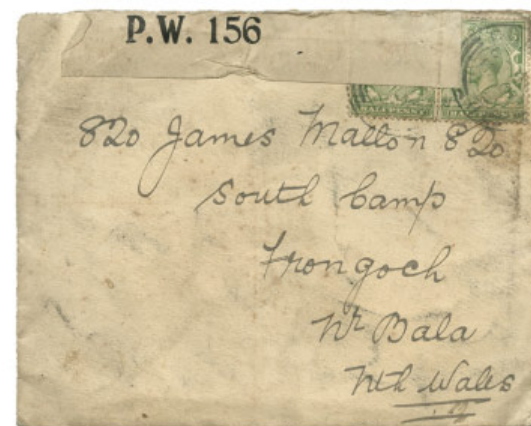 P.W. 156
820 James Mallon 820
South Camp
Frongoch
Nr Bala
Nth Wales